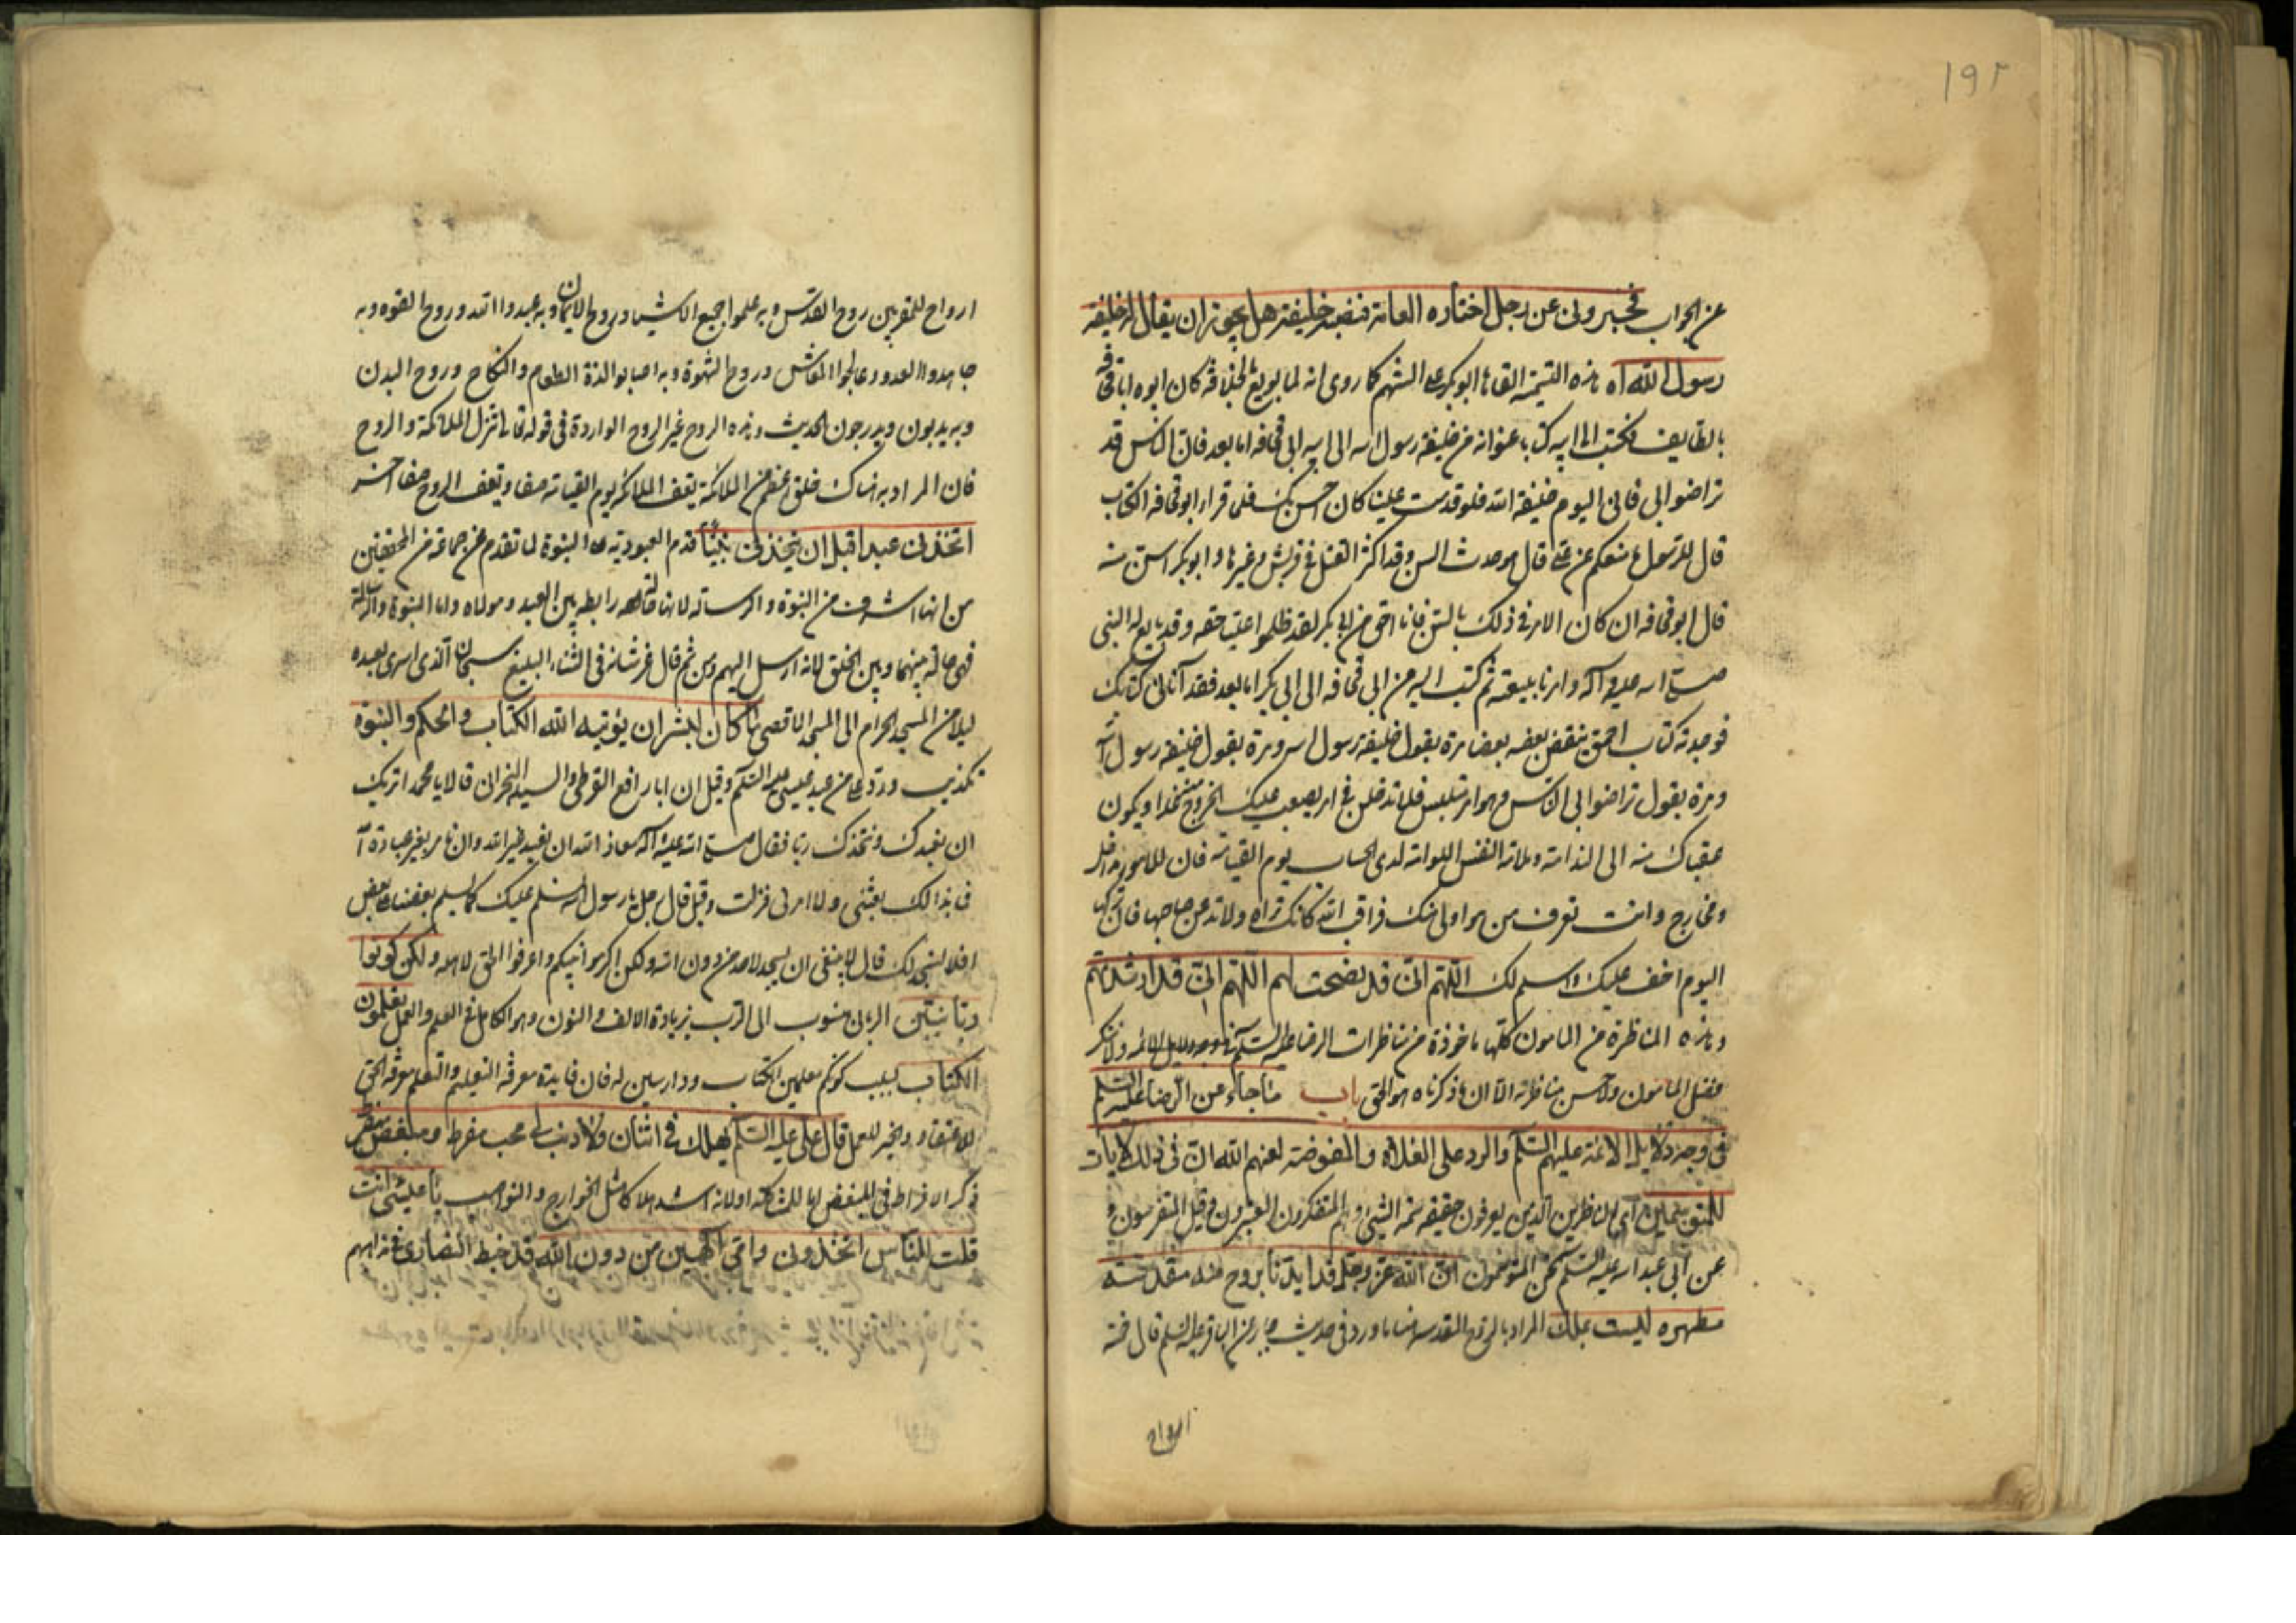 ١٩٢
عن الجواب فخبرونى عن رجل اختاره العامة فنصبته خليفة هل يجوز ان يقال له خليفة
رسول الله اه هذه التيمة القاها ابو بكر على الشهر كما روى انه لما بويع بالخلافة كان ابوه ابا قحافة
بالطايف فكتب الى ابيه كتابا عنوانه من خليفة رسول الله الى ابيه ابى قحافه اما بعد فان الناس قد
تراضوا بى فانى اليوم خليفة الله فلو قدمت علينا كان احسن بك فلما قرا ابو قحافه الكتاب
قال للرسول ما منعكم عن على قال هو حدث السن وقد اكثر القتل فى قريش وغيرها وابو بكر اسن منه
قال ابو قحافه ان كان الامر فى ذلك بالسن فانا احق من ابى بكر لقد ظلموا عليا حقه وقد بايع له النبى
صلى الله عليه وآله وامرنا ببيعته ثم كتب اليه من ابى قحافه الى ابى بكر اما بعد فقد آتانى كتابك
فوجدته كتاب احمق ينقض بعضه بعضا مرة يقول خليفة رسول الله ومرة يقول خليفة رسول الله
ومرة يقول تراضوا بى الناس وهو امر ملتبس فلا تدخلن فى امر يصعب عليك الخروج منه غدا ويكون
عقباك منه الى الندامة وملامة النفس اللوامة لدى الحساب يوم القيامة فان للامور مداخل
ومخارج وانت تعرف من هو اولى منك فراقب الله كانك تراه ولا تدعن صاحبها فان تركها
اليوم اخف عليك واسلم لك اللهم انى قد نصحت لهم اللهم انى قد ارشدتهم
وهذه المناظرة من المامون كلها ماخوذة من مناظرات الرضا عليه السلم
فضل المامون ولا حسن مناظرته الا ان ما ذكرناه هو الحق باب ما جاء عن الرضا عليه السلم
فى وجه دلايل الائمة عليهم السلم والرد على الغلاة والمفوضة لعنهم الله ان فى ذلك لآيات
للمتوسمين اى للناظرين الذين يعرفون حقيقة سمة الشيئ وهم المتفكرون المعتبرون وقيل المتفرسون و
عن ابى عبد الله عليه السلم نحن المتوسمون ان الله عز وجل قد ايدنا بروح منه مقدسة
مطهره ليست بملك المراد بالروح المقدسة هنا ما ورد فى حديث جابر عن الباقر عليه السلم قال خمسة
ارواح
ارواح للمقربين روح القدس وبه علموا جميع الاشياء وروح الايمان وبه عبدوا الله وروح القوه وبه
جاهدوا العدو وعالجوا المعاش وروح الشهوة وبه اصابوا لذة الطعام والنكاح وروح البدن
وبه يدبون ويدرجون الحديث وهذه الروح غير الروح الواردة فى قوله تعالى تنزل الملائكة والروح
فان المراد به هناك خلق اعظم من الملائكة يقف الملائكة يوم القيامة صفا وتقف الروح صفا آخر
اتخذنى عبدا قبل ان يتخذنى نبيا قدم العبودية على النبوة لما تقدم عن جماعة من المحققين
من انها اشرف من النبوة والرسالة لانها حالة رابطه بين العبد ومولاه واما النبوة والرسالة
فهى حالة بينهما وبين الخلق لانه ارسل اليهم ومن ثم قال عز شانه فى الثناء البليغ سبحان الذى اسرى بعبده
ليلا من المسجد الحرام الى المسجد الاقصى ما كان لبشر ان يؤتيه الله الكتاب والحكم والنبوة
تكذيب ورد على من عبد عيسى عليه السلم وقيل ان ابا رافع القرظى والسيد النجرانى قالا يا محمد اتريد
ان نعبدك ونتخذك ربا فقال صلى الله عليه وآله معاذ الله ان نعبد غير الله وان نامر بغير عبادة الله
فما بذالك بعثنى ولا امرنى فنزلت وقيل قال رجل يا رسول الله نسلم عليك كما يسلم بعضنا على بعض
افلا نسجد لك قال لا ينبغى ان يسجد لاحد من دون الله ولكن اكرموا نبيكم واعرفوا الحق لاهله ولكن كونوا
ربانيين الربانى منسوب الى الرب بزيادة الالف والنون وهو الكامل فى العلم والعمل بما كنتم تعلمون
الكتاب بسبب كونكم معلمين الكتاب ودارسين له فان فايدة معرفة التعليم والتعلم معرفة الحق
للاعتقاد والخير للعمل قال على عليه السلم يهلك فى اثنان ولا ذنب لى محب مفرط ومبغض مفرط
ذكر الافراط فى المبغض اما للمشاكلة او لانه اشد هلاكا مثل الخوارج والنواصب يا عيسى أانت
قلت للناس اتخذونى وامى آلهين من دون الله قد خبط النصارى فى مذاهبهم